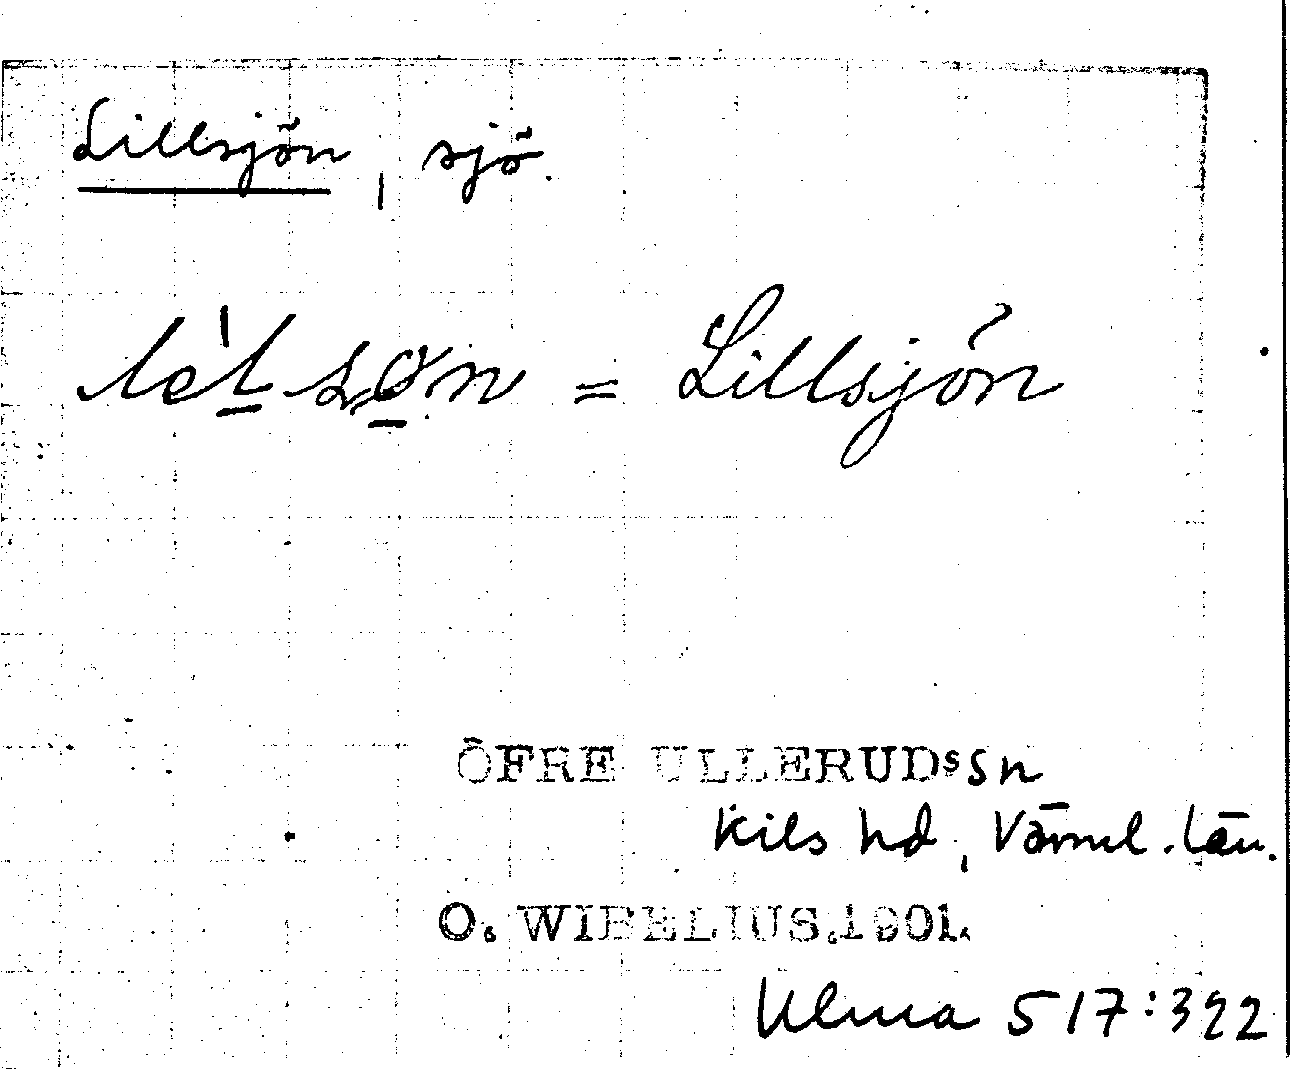 Lillsjön, sjö.
lèl søn = Lillsjön
ÖFRE ULLERUDs sn
Kils hd, Värml. län.
O. WIBELIUS. 1901.
Ulma 517:322